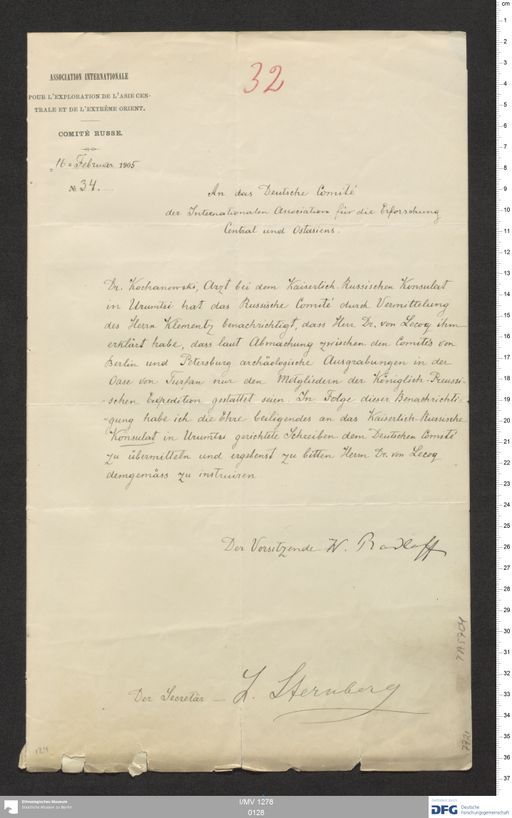 32
ASSOCIATION INTERNATIONALE
POUR L'EXPLORATION DE L'ASIE CEN-
TRALE ET DE L'EXTRÊME ORIENT.
COMITÉ RUSSE.
„16" Februar 1905
№ 34.
An das Deutsche Comité
der Internationalen Association für die Erforschung
Central und Ostasiens.
Dr. Kochanowski, Arzt bei dem Kaiserlich-Russischen Konsulat
in Urumtsi hat das Russische Comité durch Vermittelung
des Herrn Klementz benachrichtigt, dass Herr Dr. von Lecoq ihm
erklärt habe, dass laut Abmachung zwischen den Comités von
Berlin und Petersburg archäologische Ausgrabungen in der
Oase von Turfan nur den Mitgliedern der Königlich-Preussi-
schen Expedition gestattet seien. In Folge dieser Benachrichti-
gung habe ich die Ehre beiligendes an das Kaiserlich-Russische
Konsulat in Urumtsi gerichtete Schreiben dem Deutschen Comité
zu übermitteln und ergebenst zu bitten Herrn Dr. von Lecoq
demgemäss zu instruiren.
Der Vorsitzende W. Radloff
Der Secretär — L. Sternberg
TA 5704
124
Ethnologisches Museum
Staatliche Museen zu Berlin
I/MV 1278
0128
DFG
Deutsche
Forschungsgemeinschaft
cm
1
2
3
4
5
6
7
8
9
10
11
12
13
14
15
16
17
18
19
20
21
22
23
24
25
26
27
28
29
30
31
32
33
34
35
36
37